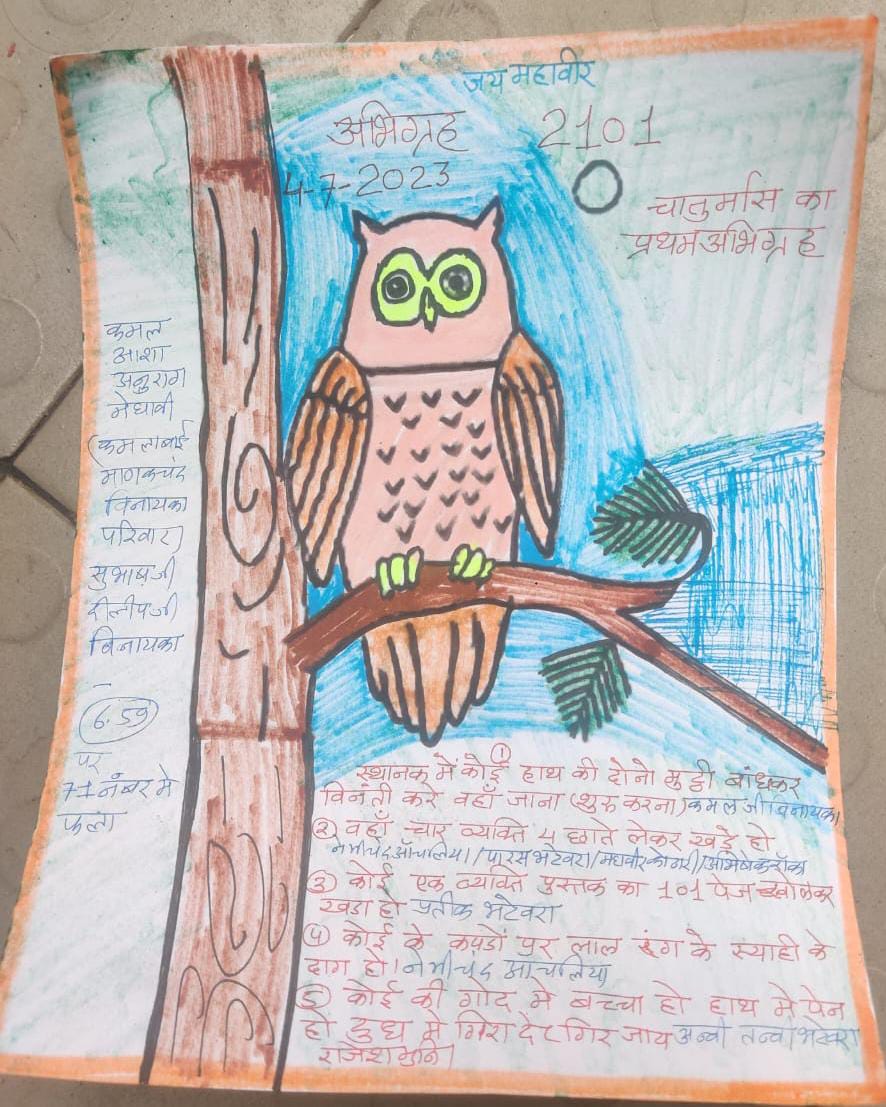 जय महावीर
अभिग्रह 2101
4-7-2023
चातुर्मास का
प्रथम अभिग्रह
कमल
आशा
अनुराग
मेधावी
(कमलाबाई
माणकचंद
विनायका
परिवार)
सुभाषजी
दीलीपजी
विनायका
6.59
पर
71 नंबर मे
फला
① स्थानक में कोई हाथ की दोनो मुट्ठी बांधकर
विनंती करे वहाँ जाना (शुरू करना) कमल जी विनायका
② वहाँ चार व्यक्ति 4 छाते लेकर खड़े हो
नेमीचंद आँचलिया / पारस भटेवरा /
③ कोई एक व्यक्ति पुस्तक का 101 पेज खोलकर
खडा हो प्रतीक भटेवरा
④ कोई के कपडों पर लाल रंग के स्याही के
दाग हो। नेमीचंद आंचलिया
⑤ कोई की गोद मे बच्चा हो हाथ मे पेन
हो दुध मे गिरा दे गिर जाय तन्वी भटेवरा
राजेशमुनि